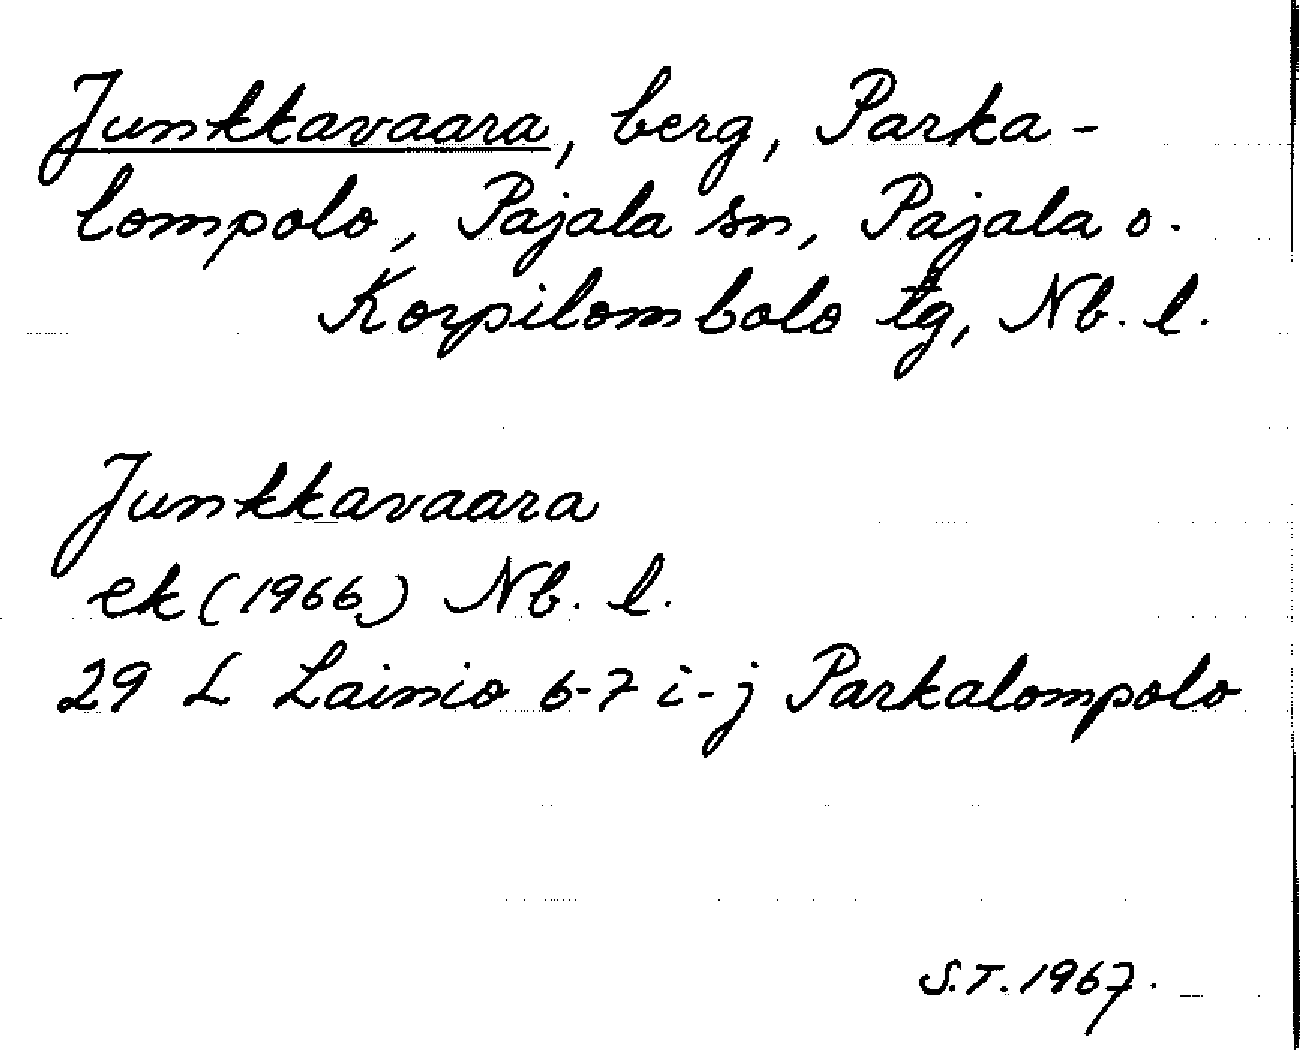 Junkkavaara, berg, Parka-
lompolo, Pajala sn, Pajala o.
Korpilombolo tg, Nb. l.
Junkkavaara
ek (1966) Nb. l.
29 L Lainio 6-7 i-j Parkalompolo
S.T. 1967.